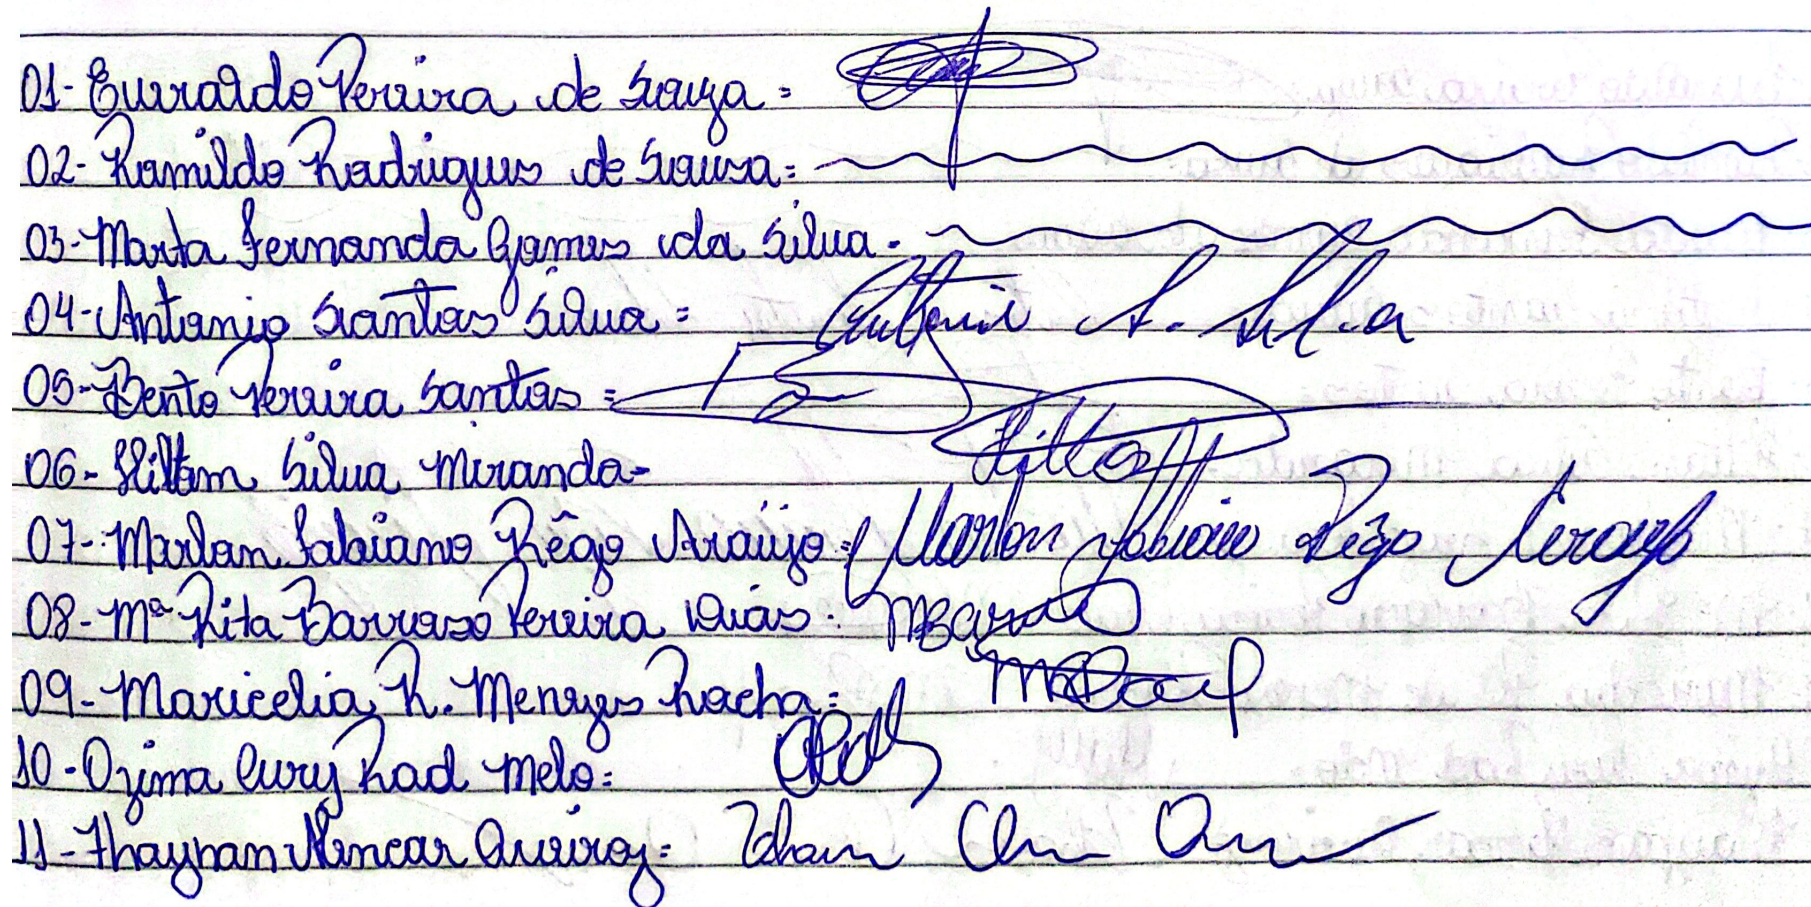 01- Eurraldo Pereira de Souza =
02- Ramildo Rodrigues de Sousa =
03- Marta Fernanda Gomes da Silva -
04- Antonio Santos Silva = A. Silva
05- Bento Pereira Santos =
06- Hiltom Silva Miranda -
07- Marlon Fabiano Rêgo Araújo = Marlon Fabiano Rêgo Araujo
08- Mª Rita Barroso Pereira Dias :
09- Maricelia R. Menezes Rocha =
10- Ozima Cury Rad Melo =
11- Thaynan Alencar Queiroz =